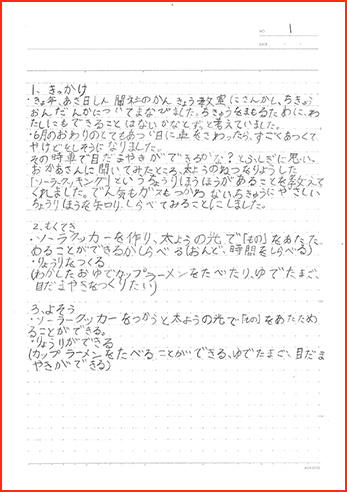 NO. 1
DATE
1、きっかけ
・きょ年、あさ日しん聞社のかんきょう教室にさんかし、ちきゅう
おんだんかについてまなびました。ちきゅうをまもるために、わ
たしにもできることはないかなとずっと考えていました。
・6月のおわりのとてもあつい日に車をさわったら、すごくあつくて
やけどをしそうになりました。
その時車で目だまやきができるかな？とふしぎに思い、
おかあさんに聞いてみたところ、太ようのねつをりようした
「ソーラークッキング」というちょうりほうほうがあることを教えて
くれました。でん気もガスもつかわないちきゅうにやさしい
ちょうりほうを知り、しらべてみることにしました。
2、もくてき
・ソーラークッカーを作り、太ようの光で「もの」をあたた
めることができるか(しらべる(おんど、時間をしらべる)
・りょうりをつくる
(わかしたおゆでカップラーメンをたべたり、ゆでたまご、
目だまやきをつくりたい)
3、よそう
・ソーラークッカーをつかうと太ようの光で「もの」をあたため
ることができる。
・りょうりができる
(カップラーメンをたべることができる、ゆでたまご、目だま
やきができる)